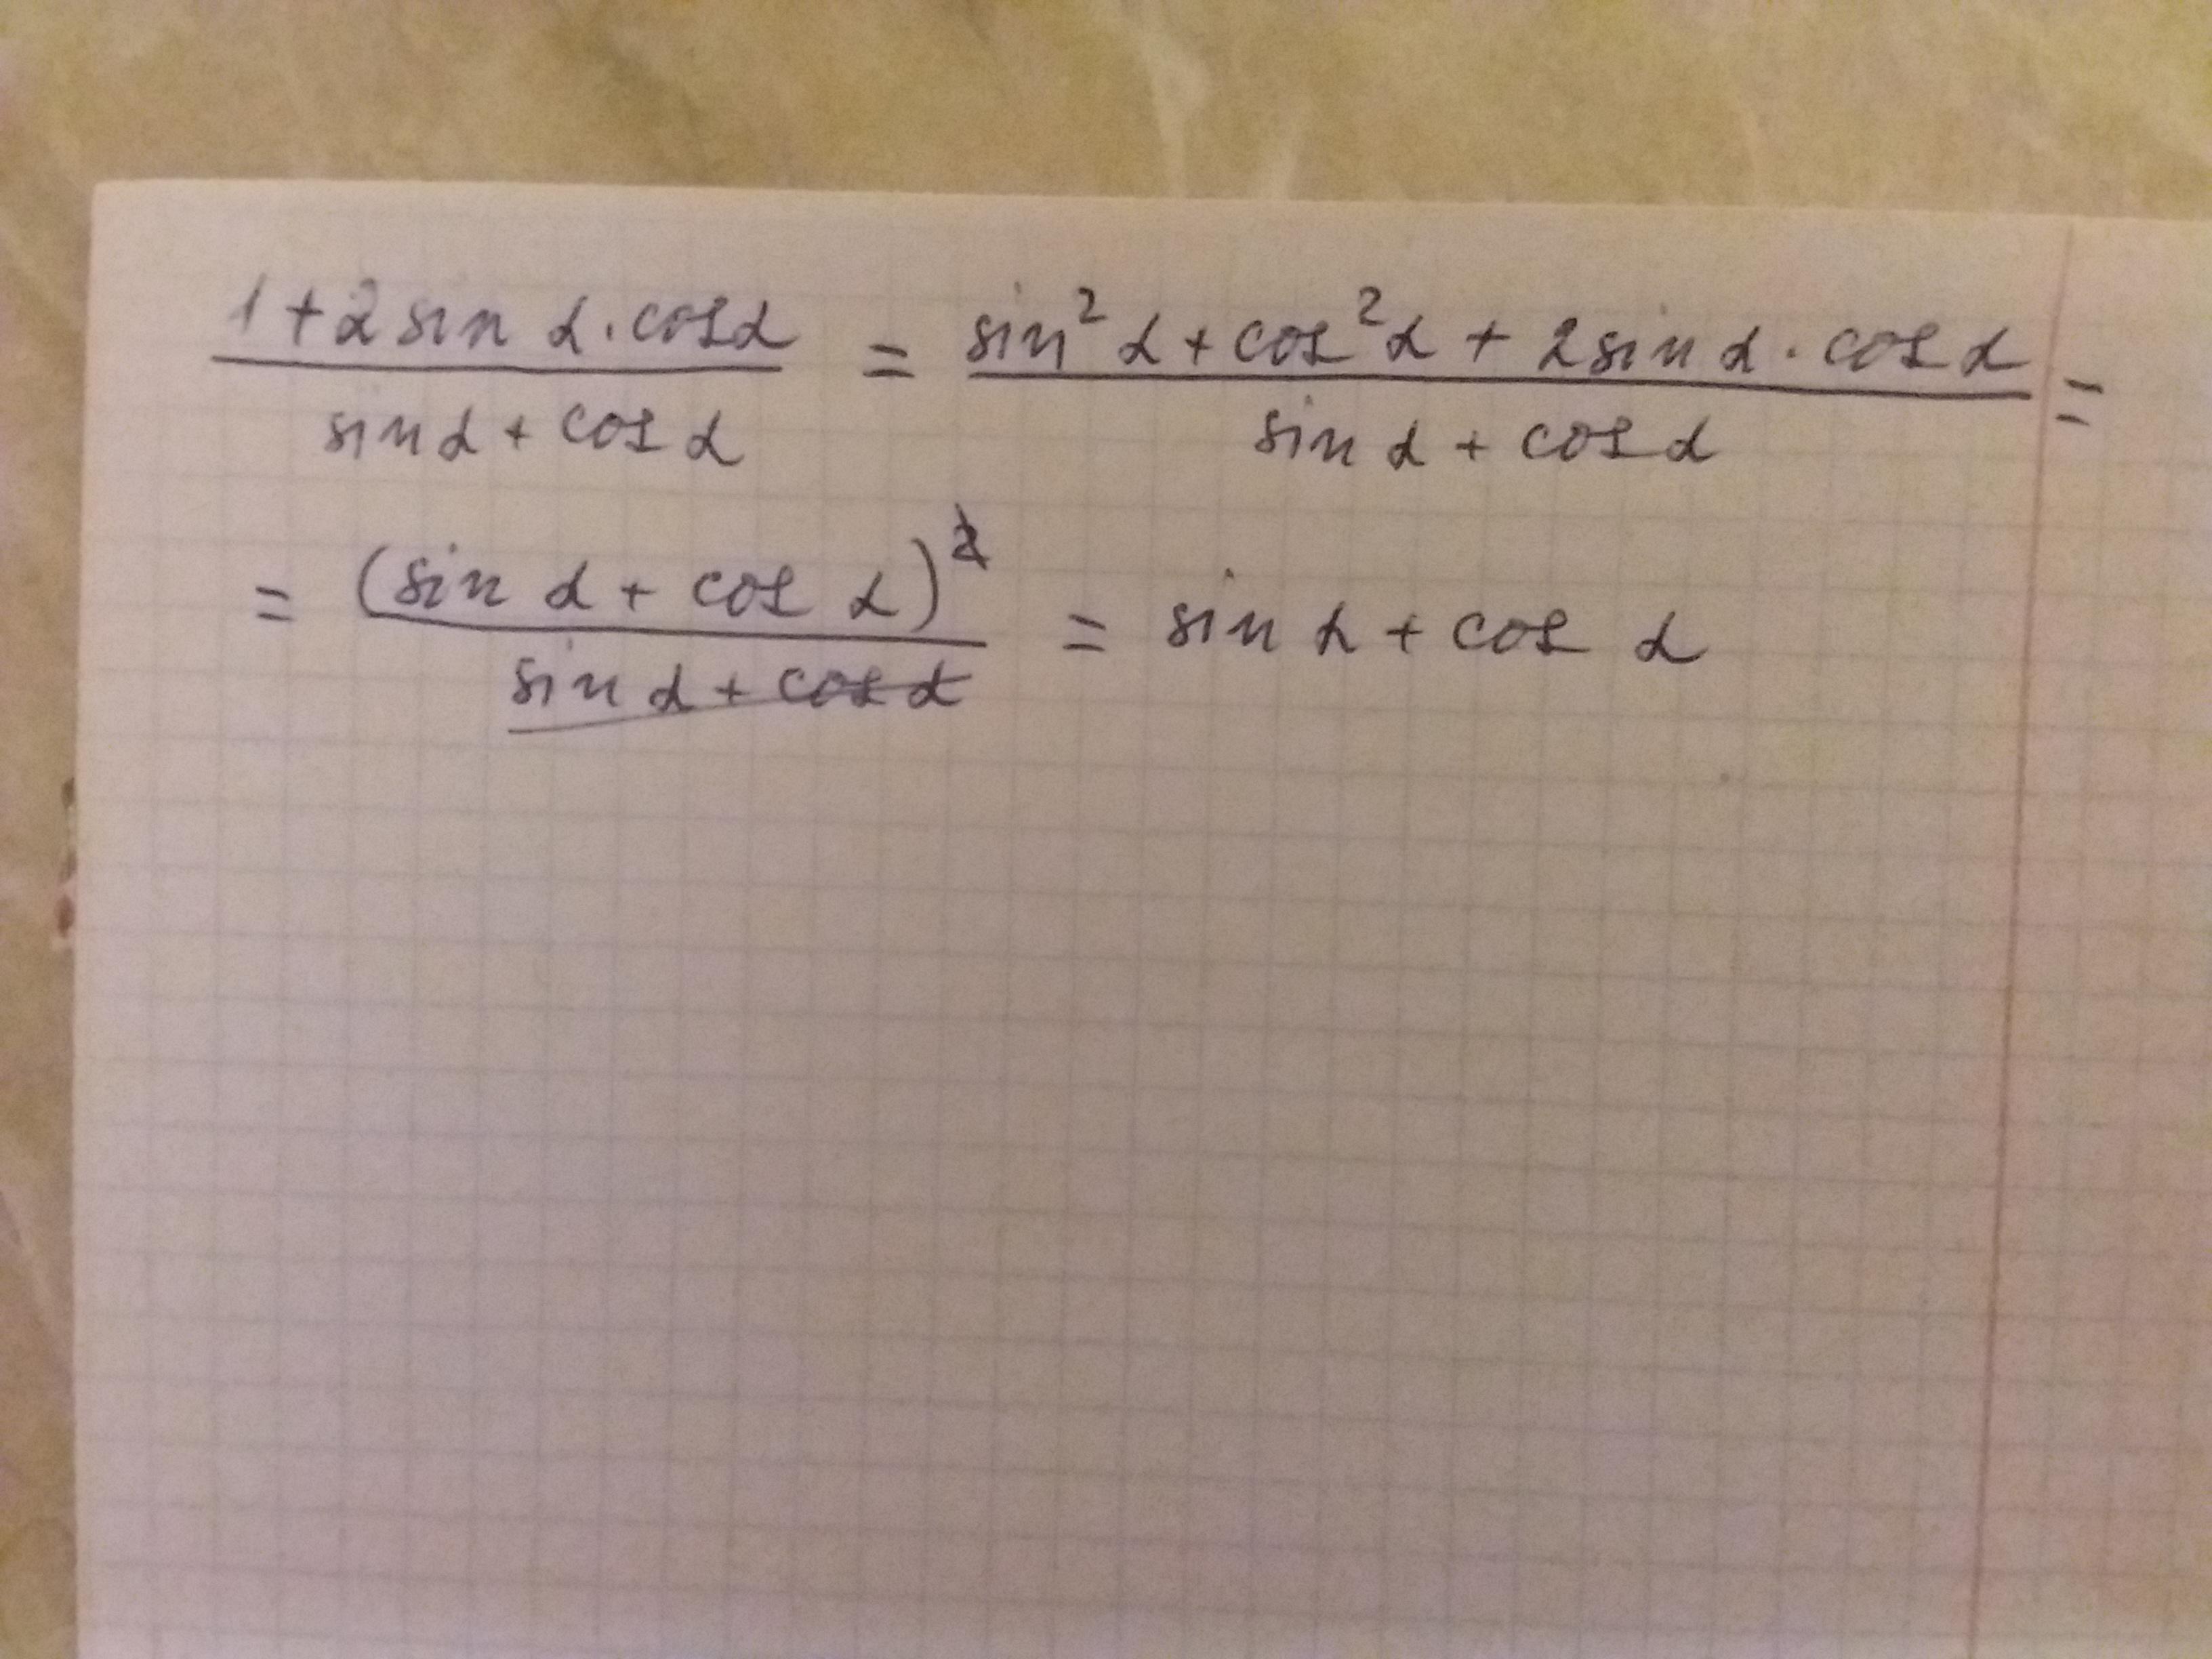 (1 + 2 sin α · cos α) / (sin α + cos α) = (sin² α + cos² α + 2 sin α · cos α) / (sin α + cos α) =
= (sin α + cos α)² / (sin α + cos α) = sin α + cos α